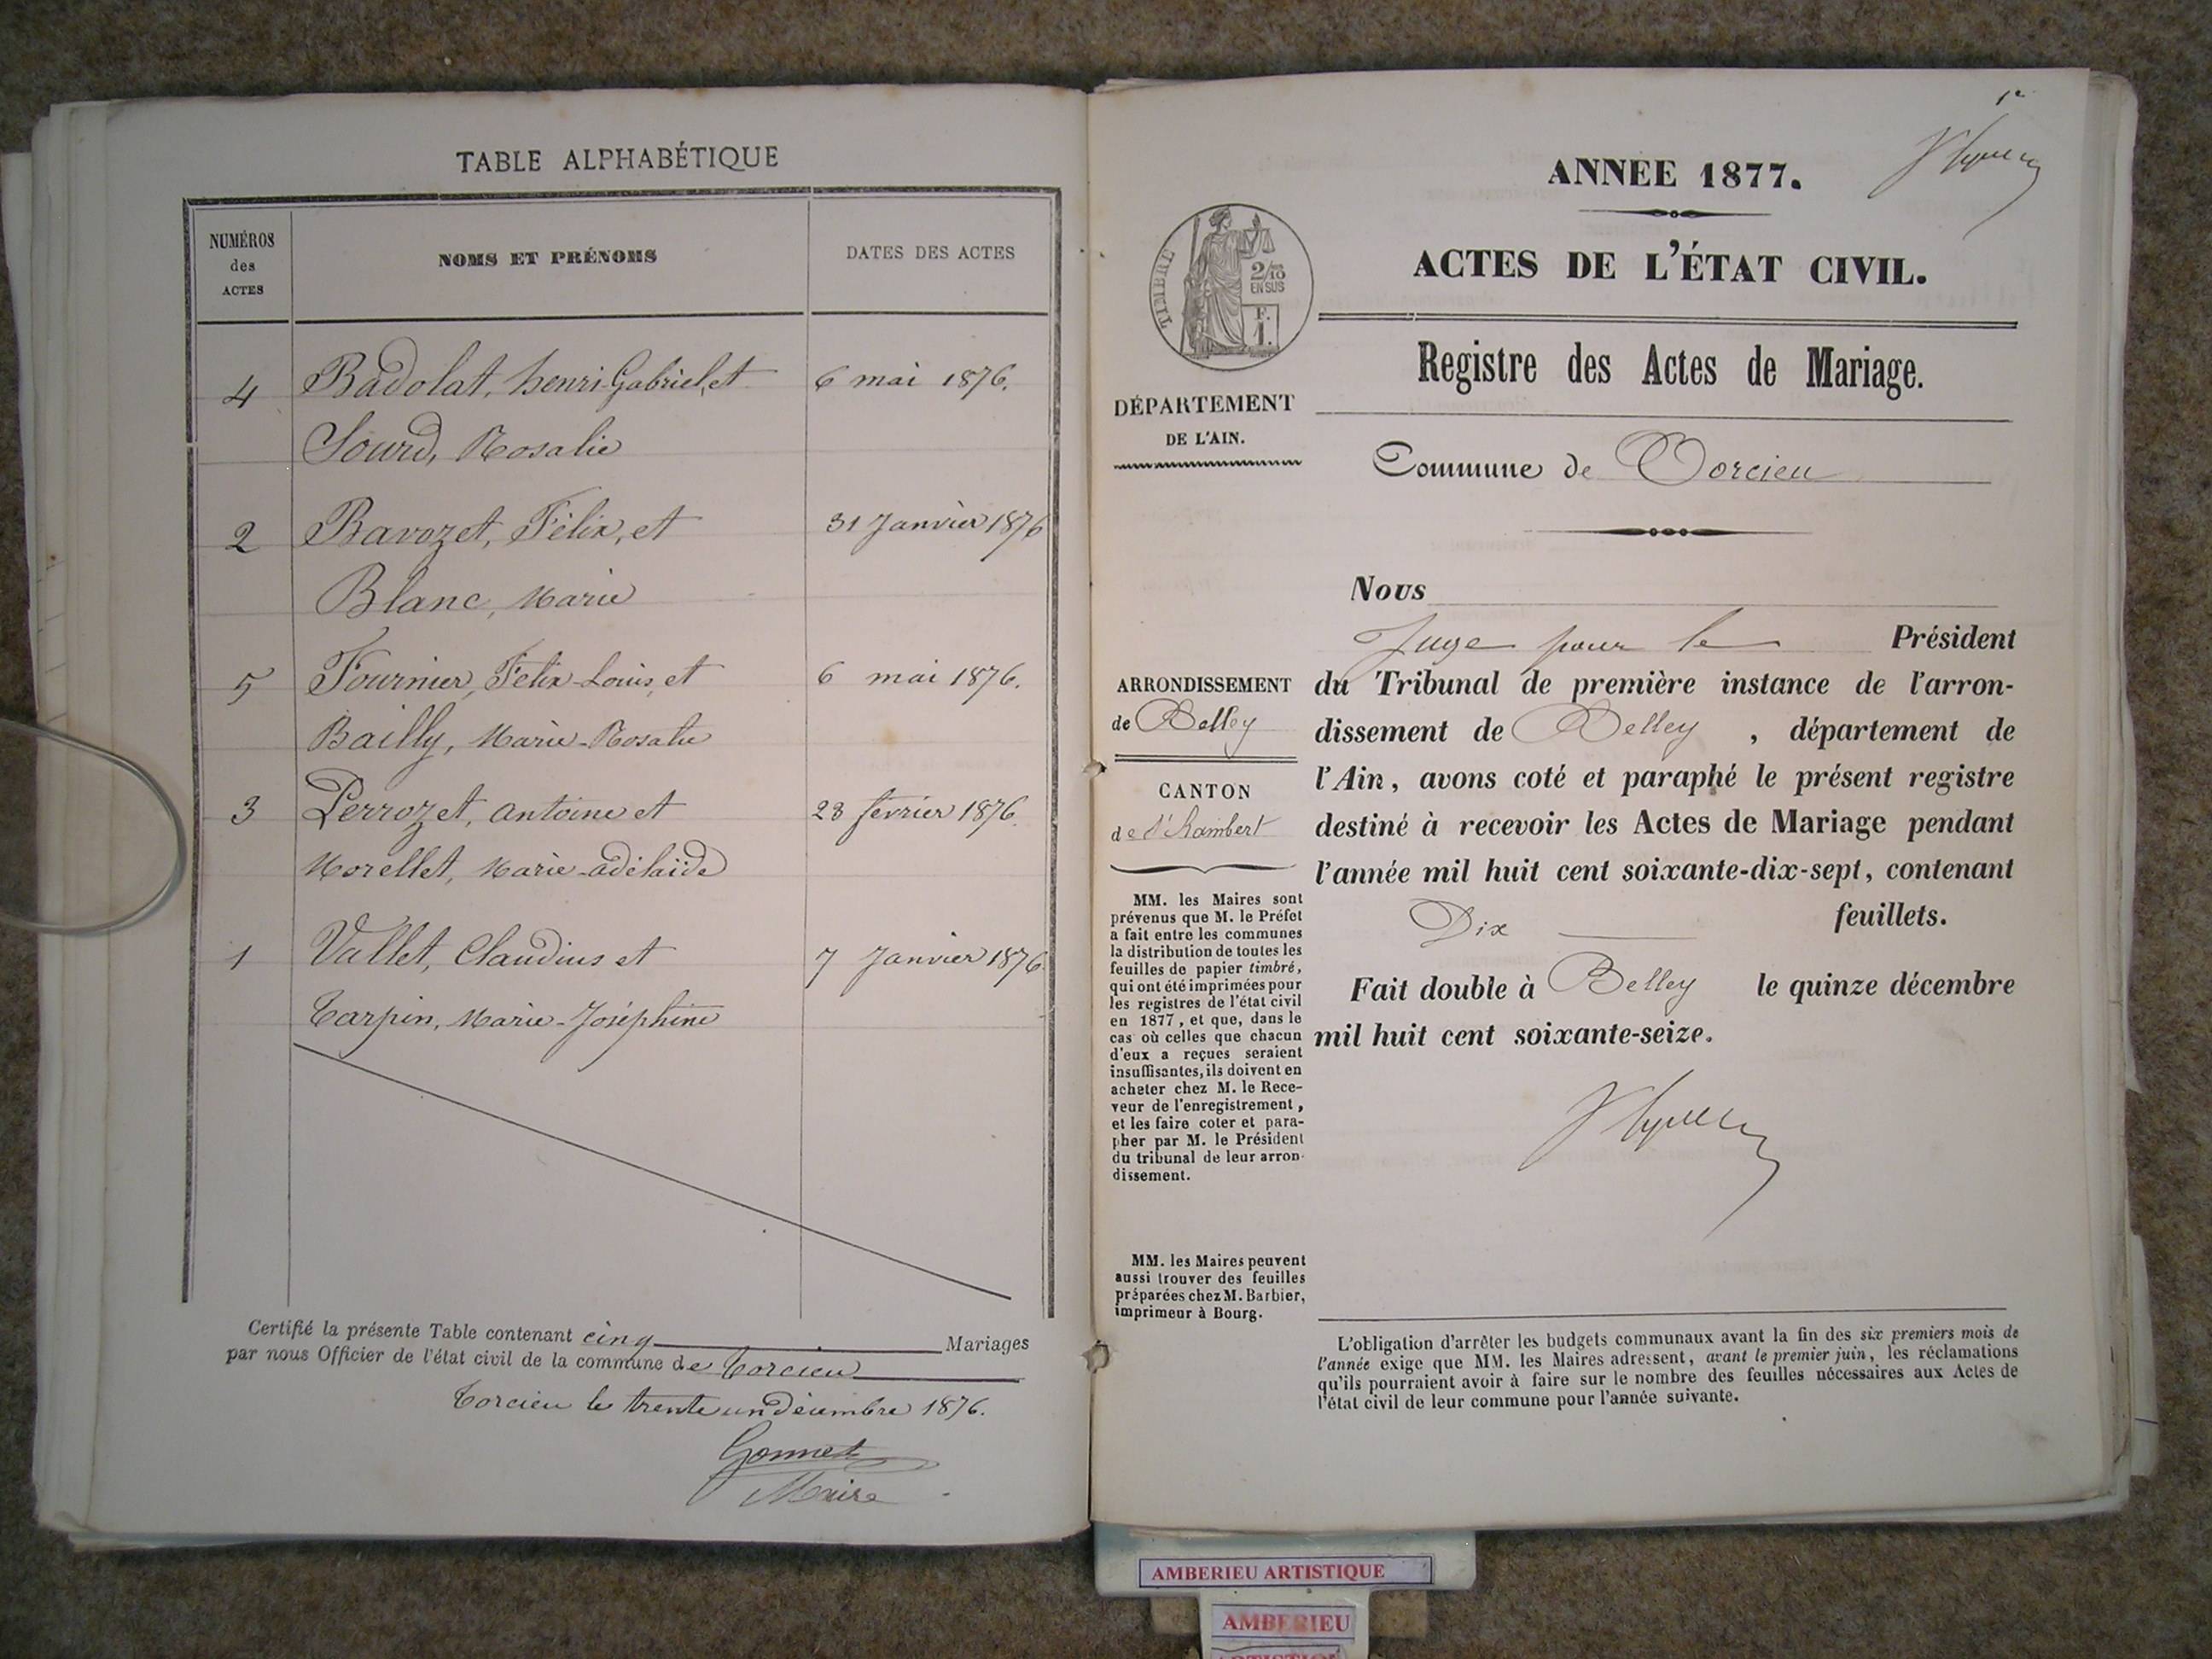 TABLE ALPHABÉTIQUE
NUMÉROS
des
ACTES
NOMS ET PRÉNOMS
DATES DES ACTES
4 Badolat, henri-Gabriel, et 6 mai 1876.
Sourd, Rosalie
2 Bavozet, Félix, et 31 Janvier 1876
Blanc, Marie
5 Fournier, Félix-Louis, et 6 mai 1876.
Bailly, Marie-Rosalie
3 Perrozet, antoine et 23 février 1876.
Morellet, Marie-adélaïde
1 Vallet, Claudius et 7 Janvier 1876.
Tarpin, Marie-Joséphine
Certifié la présente Table contenant cinq Mariages
par nous Officier de l'état civil de la commune de Torcieu
Torcieu le trente un Décembre 1876.
Gonnet
Maire
1er
ANNEE 1877.
TIMBRE
2/10
EN SUS
F.
1.
ACTES DE L'ÉTAT CIVIL.
Registre des Actes de Mariage.
DÉPARTEMENT
DE L'AIN.
Commune de Torcieu
Nous
Juge pour le Président
du Tribunal de première instance de l'arron-
dissement de Belley, département de
l'Ain, avons coté et paraphé le présent registre
destiné à recevoir les Actes de Mariage pendant
l'année mil huit cent soixante-dix-sept, contenant
Dix feuillets.
Fait double à Belley le quinze décembre
mil huit cent soixante-seize.
ARRONDISSEMENT
de Belley
CANTON
de St Rambert
MM. les Maires sont
prévenus que M. le Préfet
a fait entre les communes
la distribution de toutes les
feuilles de papier timbré,
qui ont été imprimées pour
les registres de l'état civil
en 1877, et que, dans le
cas où celles que chacun
d'eux a reçues seraient
insuffisantes, ils doivent en
acheter chez M. le Rece-
veur de l'enregistrement,
et les faire coter et para-
pher par M. le Président
du tribunal de leur arron-
dissement.
MM. les Maires peuvent
aussi trouver des feuilles
préparées chez M. Barbier,
imprimeur à Bourg.
L'obligation d'arrêter les budgets communaux avant la fin des six premiers mois de
l'année exige que MM. les Maires adressent, avant le premier juin, les réclamations
qu'ils pourraient avoir à faire sur le nombre des feuilles nécessaires aux Actes de
l'état civil de leur commune pour l'année suivante.
AMBERIEU ARTISTIQUE
AMBERIEU
ARTISTIQUE